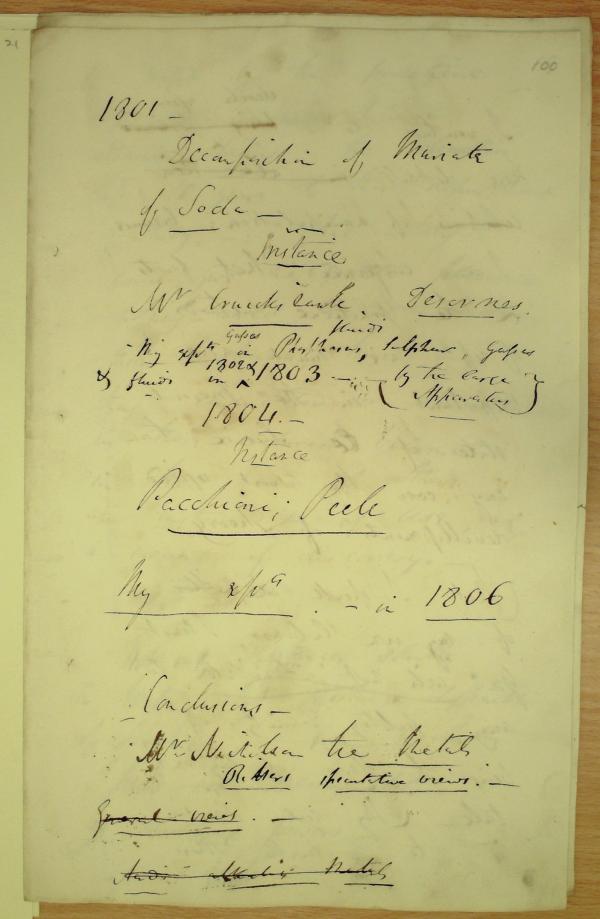 21
100
1801 —
Decomposition of Muriate
of Soda —
Instance
Mr Cruickshank. Desormes.
fluids
My expts Gasses in Phosphorus, Sulphur, Gasses
& fluids in 1802 & 1803 — (by the large
Apparatus)
1804. —
Instance
Pacchiani; Peele
My expts. — in 1806
Conclusions —
Mr Nicholson the Metals
Ritters speculative views. —
General views. —
alkaline Metals